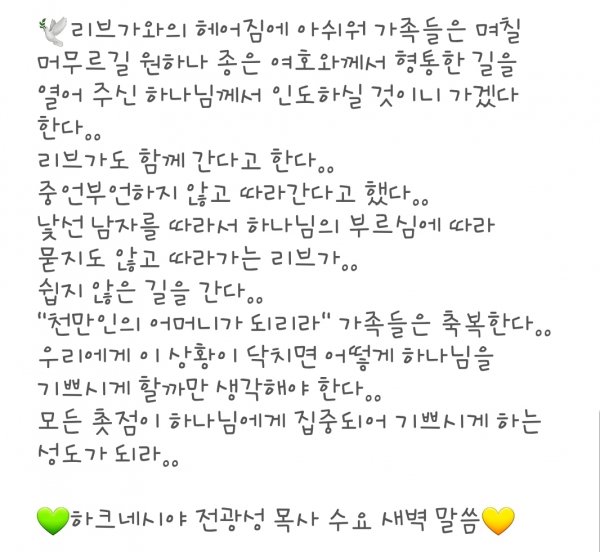 🕊리브가와의 헤어짐에 아쉬워 가족들은 며칠
머무르길 원하나 종은 여호와께서 형통한 길을
열어 주신 하나님께서 인도하실 것이니 가겠다
한다。。
리브가도 함께 간다고 한다。。
중언부언하지 않고 따라간다고 했다。。
낯선 남자를 따라서 하나님의 부르심에 따라
묻지도 않고 따라가는 리브가。。
쉽지 않은 길을 간다。。
"천만인의 어머니가 되리라" 가족들은 축복한다。。
우리에게 이 상황이 닥치면 어떻게 하나님을
기쁘시게 할까만 생각해야 한다。。
모든 촛점이 하나님에게 집중되어 기쁘시게 하는
성도가 되라。。
💚하크네시야 전광성 목사 수요 새벽 말씀💛